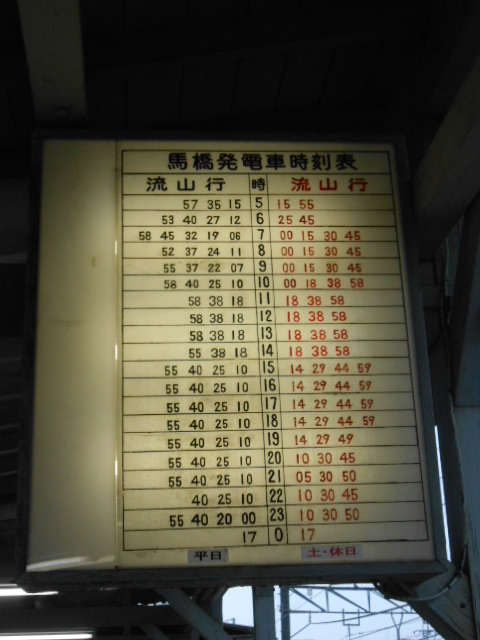 馬橋発電車時刻表
流山行 時 流山行
57 35 15 5 15 55
53 40 27 12 6 25 45
58 45 32 19 06 7 00 15 30 45
52 37 24 11 8 00 15 30 45
55 37 22 07 9 00 15 30 45
58 40 25 10 10 00 18 38 58
58 38 18 11 18 38 58
58 38 18 12 18 38 58
58 38 18 13 18 38 58
55 38 18 14 18 38 58
55 40 25 10 15 14 29 44 59
55 40 25 10 16 14 29 44 59
55 40 25 10 17 14 29 44 59
55 40 25 10 18 14 29 44 59
55 40 25 10 19 14 29 49
55 40 25 10 20 10 30 45
55 40 25 10 21 05 30 50
40 25 10 22 10 30 45
55 40 20 00 23 10 30 50
17 0 17
平日 土・休日